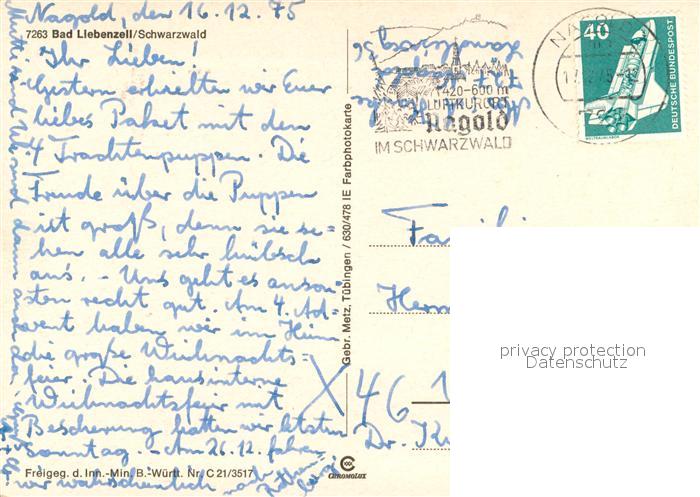 Nagold, den 16.12.75
7263 Bad Liebenzell/Schwarzwald
Ihr Lieben!
Gestern erhielten wir Euer
liebes Paket mit den
4 Trachtenpuppen. Die
Freude über die Puppen
ist groß, denn sie se-
hen alle sehr hübsch
aus. - Uns geht es anson-
sten recht gut. Am 4. Ad-
vent haben wir im Heim
die große Weihnachts=
feier. Die hausinterne
Weihnachtsfeier mit
Bescherung hatten wir letzten
Sonntag. - Am 26.12. fahren
wir wahrscheinlich nach
Freigeg. d. Inn.-Min. B.-Württ. Nr. C 21/3517
Gebr. Metz, Tübingen / 630/478 IE Farbphotokarte
CHROMOLUX
420-600 m
LUFTKURORT
Nagold
IM SCHWARZWALD
NAGOLD
40
DEUTSCHE BUNDESPOST
WELTRAUMLABOR
Familie
46
privacy protection
Datenschutz